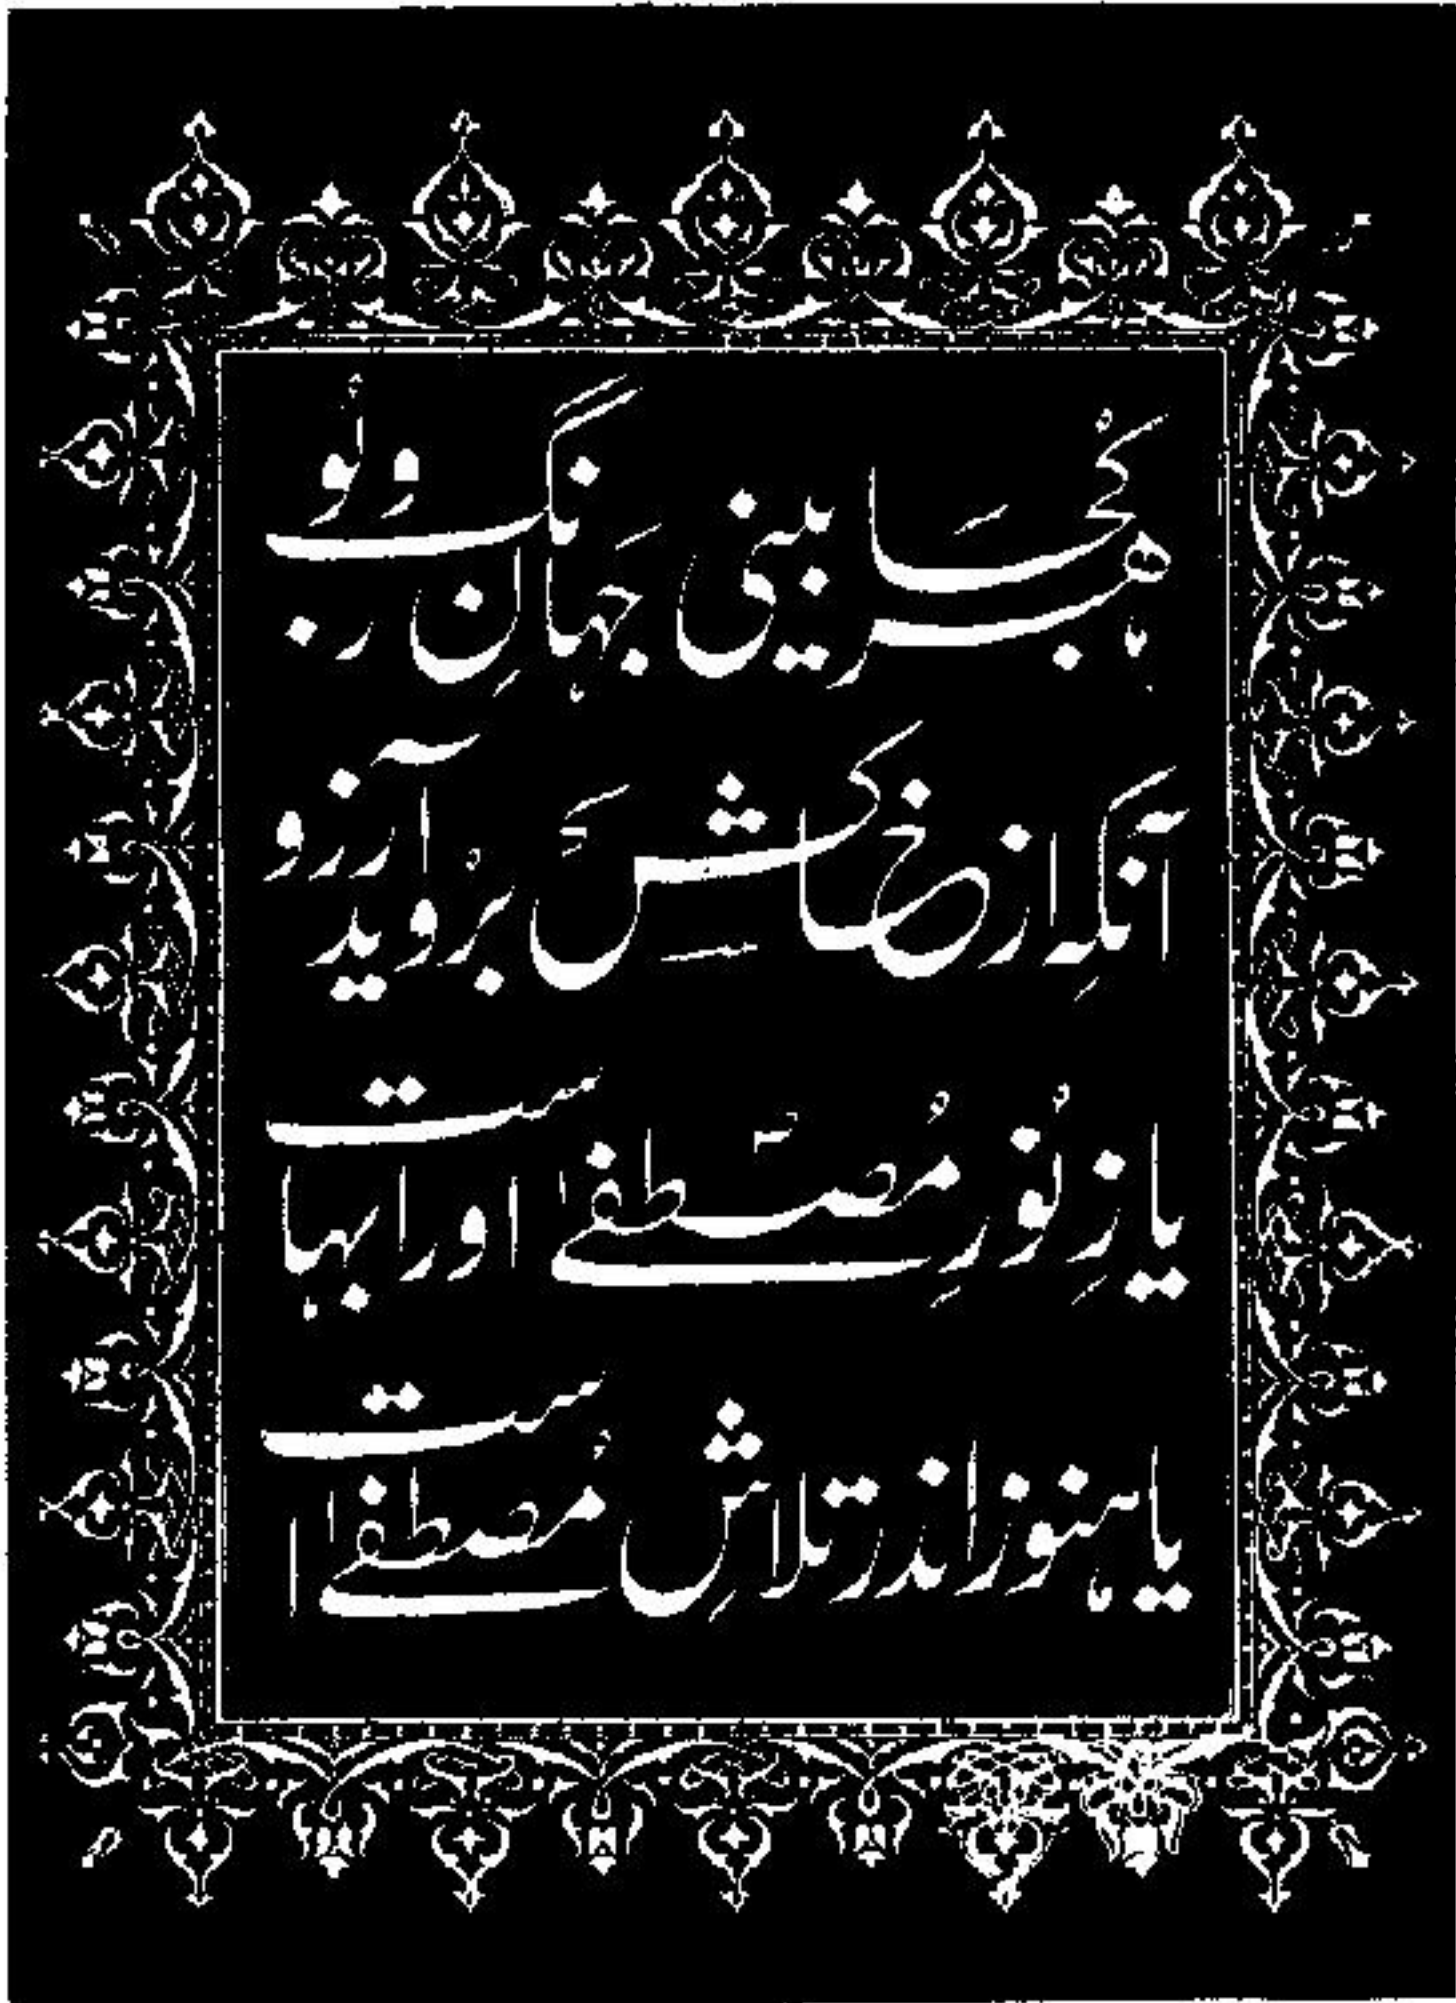 ہر کُجا بینی جہانِ رنگ و بُو
آنکہ از خاکش بَرُوید آرزو
یا زِ نُورِ مُصطفٰے او را بہاست
یا ہنوز اندر تلاشِ مُصطفٰے است